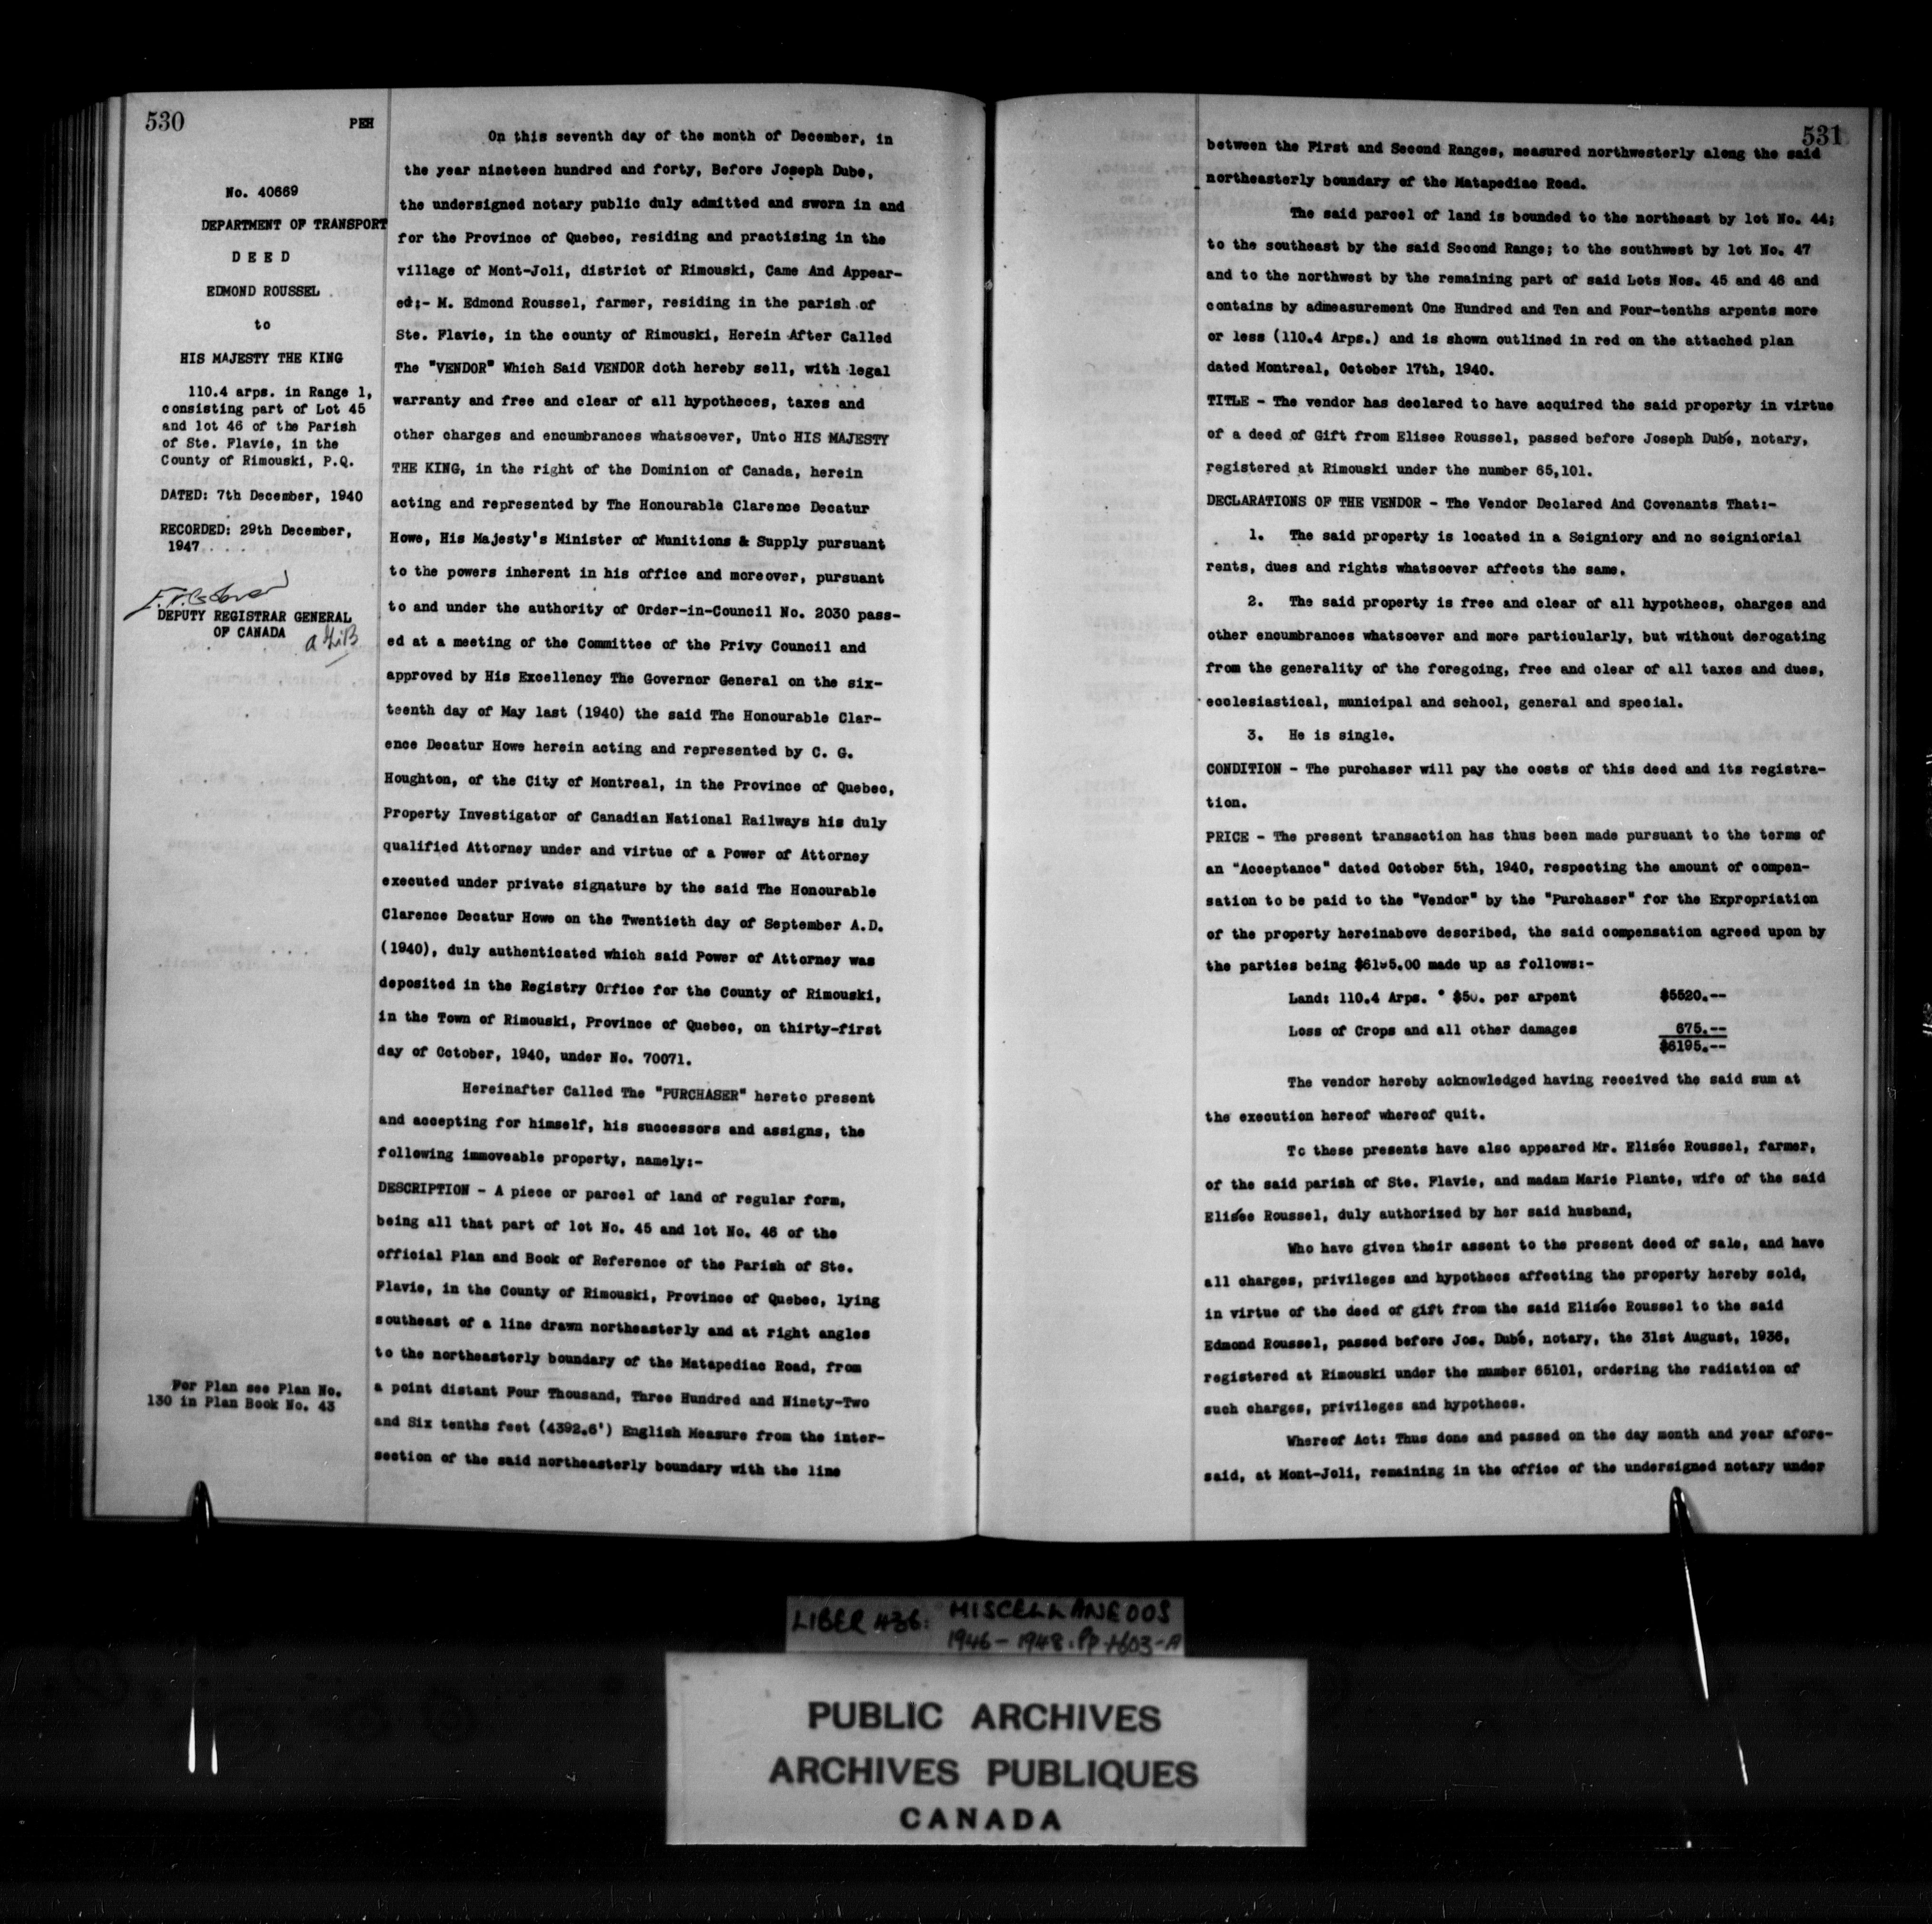 530
PEH
No. 40669
DEPARTMENT OF TRANSPORT
D E E D
EDMOND ROUSSEL
to
HIS MAJESTY THE KING
110.4 arps. in Range 1,
consisting part of Lot 45
and lot 46 of the Parish
of Ste. Flavie, in the
County of Rimouski, P.Q.
DATED: 7th December, 1940
RECORDED: 29th December,
1947
DEPUTY REGISTRAR GENERAL
OF CANADA
For Plan see Plan No.
130 in Plan Book No. 43
On this seventh day of the month of December, in
the year nineteen hundred and forty, Before Joseph Dube,
the undersigned notary public duly admitted and sworn in and
for the Province of Quebec, residing and practising in the
village of Mont-Joli, district of Rimouski, Came And Appear-
ed:- M. Edmond Roussel, farmer, residing in the parish of
Ste. Flavie, in the county of Rimouski, Herein After Called
The "VENDOR" Which Said VENDOR doth hereby sell, with legal
warranty and free and clear of all hypotheces, taxes and
other charges and encumbrances whatsoever, Unto HIS MAJESTY
THE KING, in the right of the Dominion of Canada, herein
acting and represented by The Honourable Clarence Decatur
Howe, His Majesty's Minister of Munitions & Supply pursuant
to the powers inherent in his office and moreover, pursuant
to and under the authority of Order-in-Council No. 2030 pass-
ed at a meeting of the Committee of the Privy Council and
approved by His Excellency The Governor General on the six-
teenth day of May last (1940) the said The Honourable Clar-
ence Decatur Howe herein acting and represented by C. G.
Houghton, of the City of Montreal, in the Province of Quebec,
Property Investigator of Canadian National Railways his duly
qualified Attorney under and virtue of a Power of Attorney
executed under private signature by the said The Honourable
Clarence Decatur Howe on the Twentieth day of September A.D.
(1940), duly authenticated which said Power of Attorney was
deposited in the Registry Office for the County of Rimouski,
in the Town of Rimouski, Province of Quebec, on thirty-first
day of October, 1940, under No. 70071.
Hereinafter Called The "PURCHASER" hereto present
and accepting for himself, his successors and assigns, the
following immoveable property, namely:-
DESCRIPTION - A piece or parcel of land of regular form,
being all that part of lot No. 45 and lot No. 46 of the
official Plan and Book of Reference of the Parish of Ste.
Flavie, in the County of Rimouski, Province of Quebec, lying
southeast of a line drawn northeasterly and at right angles
to the northeasterly boundary of the Matapediac Road, from
a point distant Four Thousand, Three Hundred and Ninety-Two
and Six tenths feet (4392.6') English Measure from the inter-
section of the said northeasterly boundary with the line
531
between the First and Second Ranges, measured northwesterly along the said
northeasterly boundary of the Matapediac Road.
The said parcel of land is bounded to the northeast by lot No. 44;
to the southeast by the said Second Range; to the southwest by lot No. 47
and to the northwest by the remaining part of said Lots Nos. 45 and 46 and
contains by admeasurement One Hundred and Ten and Four-tenths arpents more
or less (110.4 Arps.) and is shown outlined in red on the attached plan
dated Montreal, October 17th, 1940.
TITLE - The vendor has declared to have acquired the said property in virtue
of a deed of Gift from Elisee Roussel, passed before Joseph Dubé, notary,
registered at Rimouski under the number 65,101.
DECLARATIONS OF THE VENDOR - The Vendor Declared And Covenants That:-
1. The said property is located in a Seigniory and no seigniorial
rents, dues and rights whatsoever affects the same.
2. The said property is free and clear of all hypothecs, charges and
other encumbrances whatsoever and more particularly, but without derogating
from the generality of the foregoing, free and clear of all taxes and dues,
ecclesiastical, municipal and school, general and special.
3. He is single.
CONDITION - The purchaser will pay the costs of this deed and its registra-
tion.
PRICE - The present transaction has thus been made pursuant to the terms of
an "Acceptance" dated October 5th, 1940, respecting the amount of compen-
sation to be paid to the "Vendor" by the "Purchaser" for the Expropriation
of the property hereinabove described, the said compensation agreed upon by
the parties being $6195.00 made up as follows:-
Land: 110.4 Arps. @ $50. per arpent $5520.--
Loss of Crops and all other damages 675.--
$6195.--
The vendor hereby acknowledged having received the said sum at
the execution hereof whereof quit.
To these presents have also appeared Mr. Elisée Roussel, farmer,
of the said parish of Ste. Flavie, and madam Marie Plante, wife of the said
Elisée Roussel, duly authorized by her said husband,
Who have given their assent to the present deed of sale, and have
all charges, privileges and hypothecs affecting the property hereby sold,
in virtue of the deed of gift from the said Elisée Roussel to the said
Edmond Roussel, passed before Jos. Dubé, notary, the 31st August, 1936,
registered at Rimouski under the number 65101, ordering the radiation of
such charges, privileges and hypothecs.
Whereof Act: Thus done and passed on the day month and year afore-
said, at Mont-Joli, remaining in the office of the undersigned notary under
LIBER 436: MISCELLANEOUS
1946-1948. Pp 1-603-A
PUBLIC ARCHIVES
ARCHIVES PUBLIQUES
CANADA